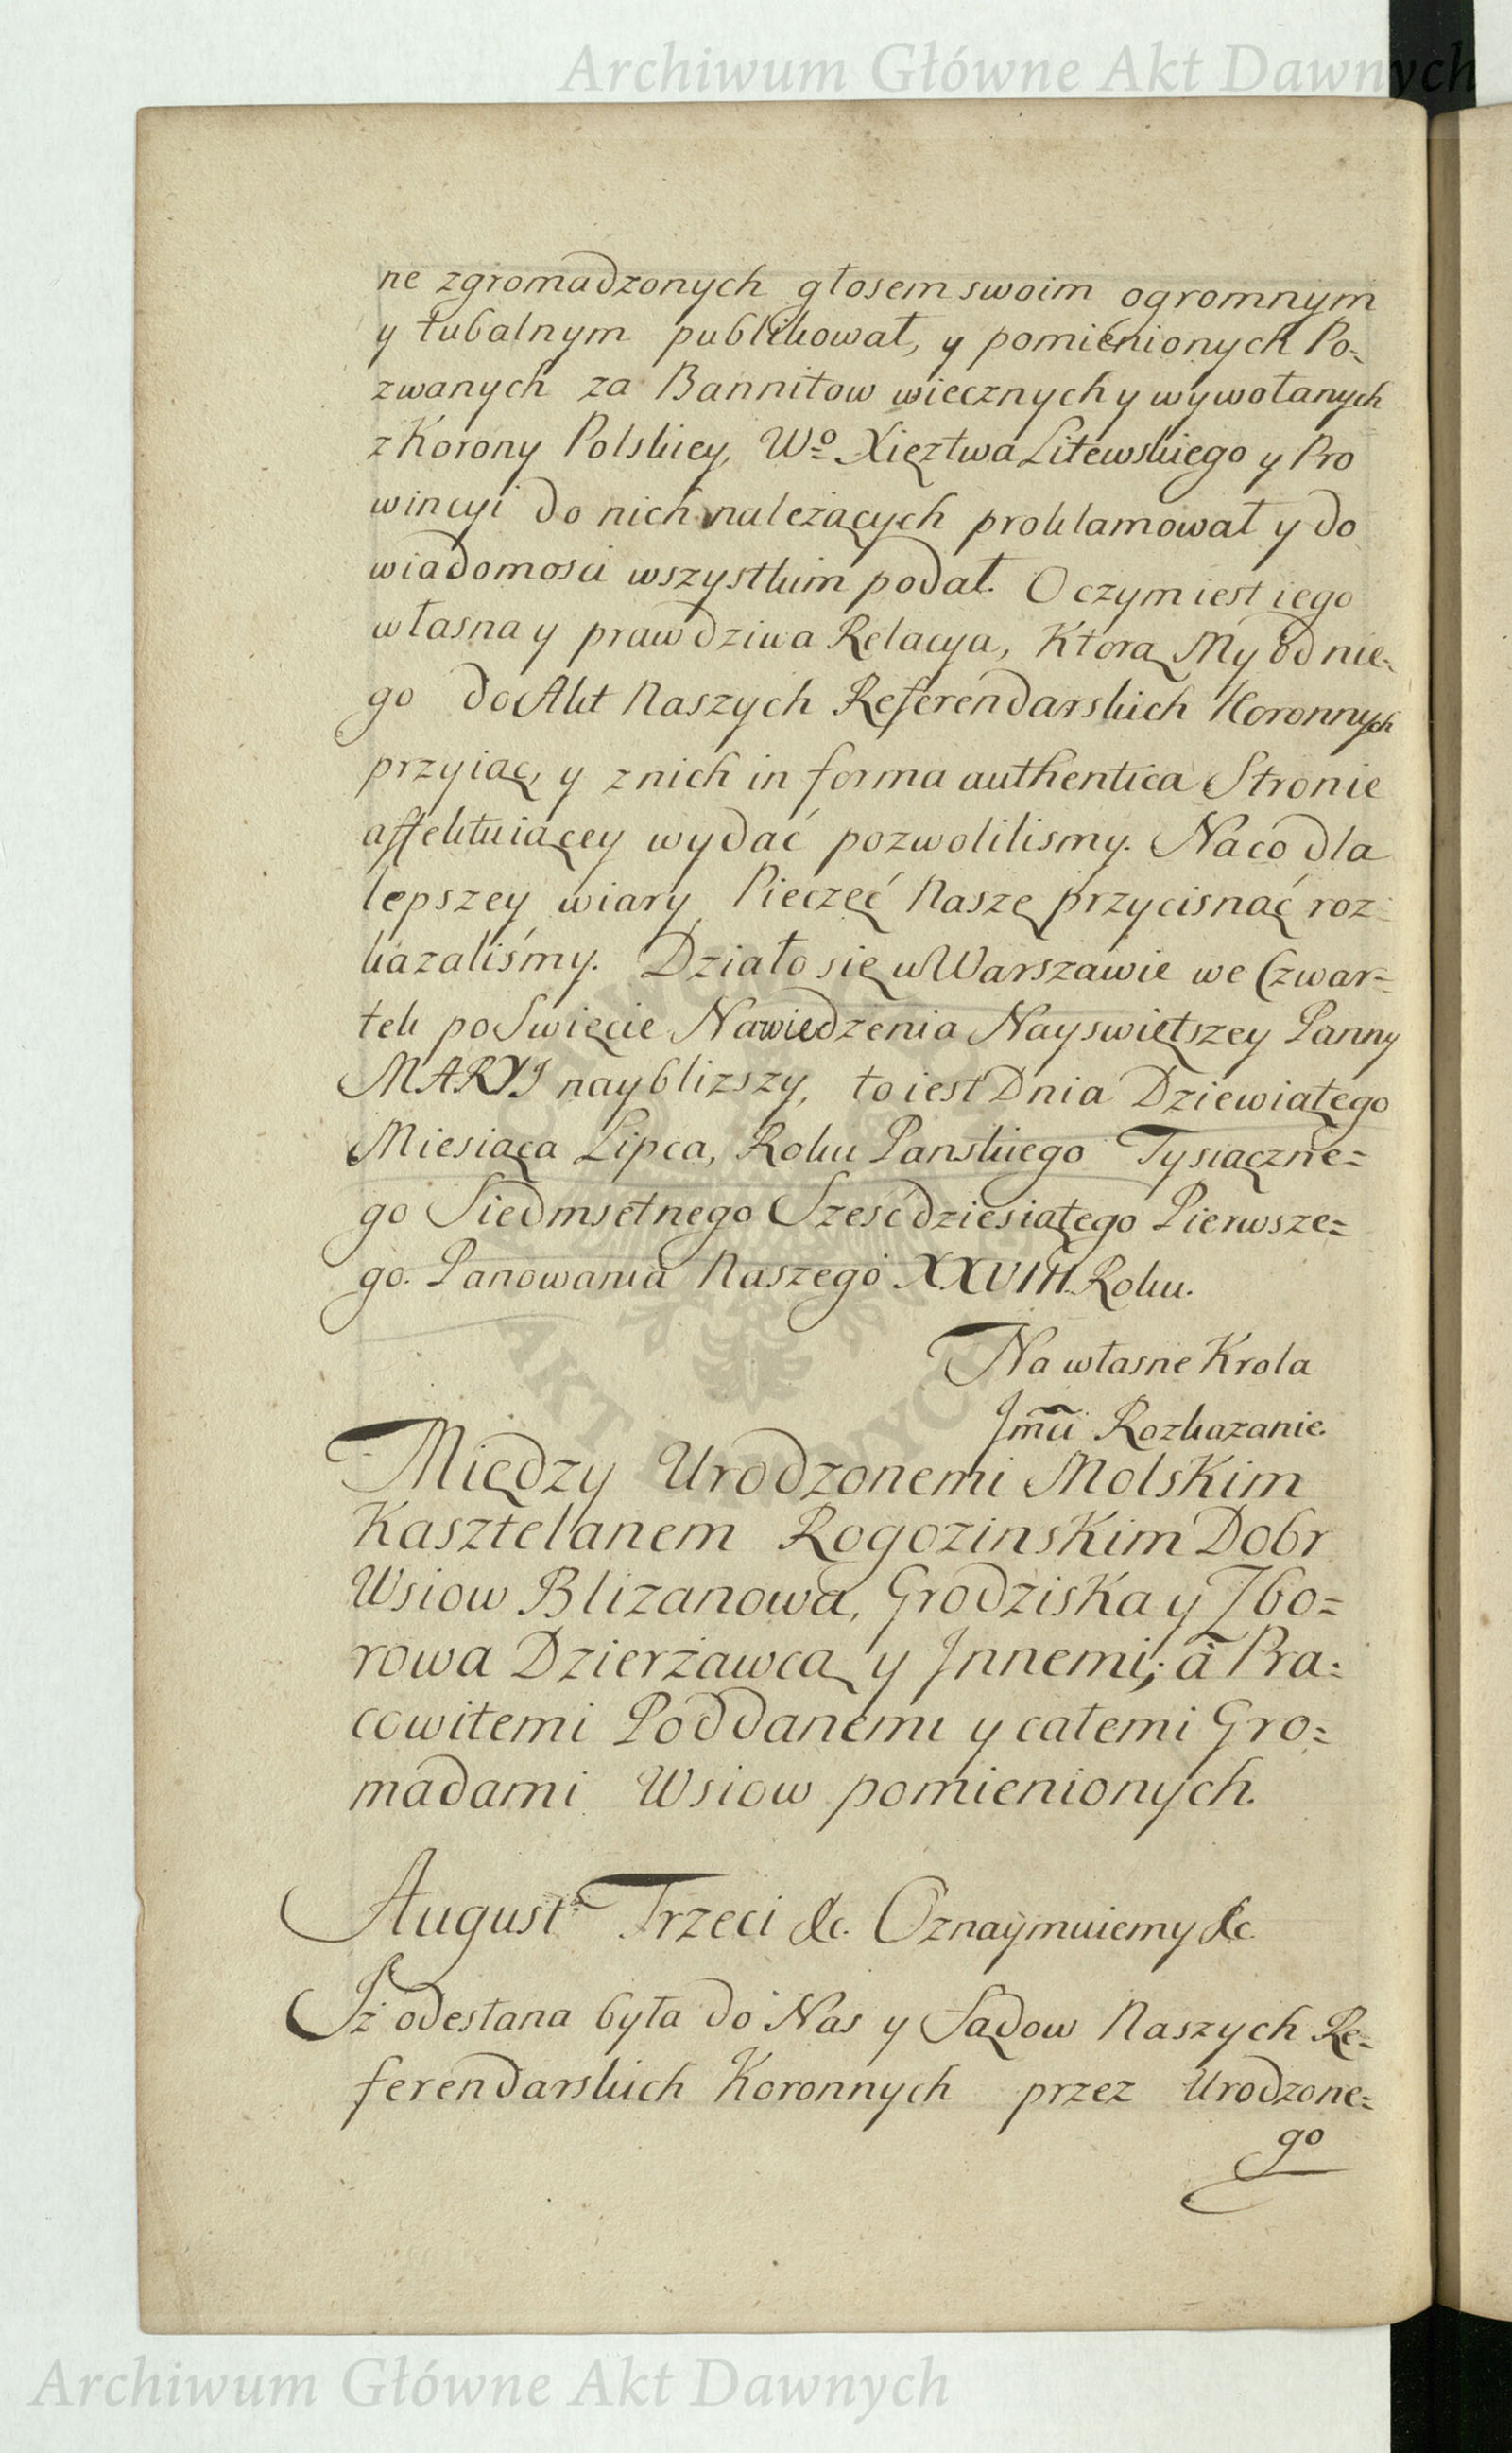 Archiwum Główne Akt Dawnych
ne zgromadzonych głosem swoim ogromnym
y tubalnym publikował, y pomienionych Po=
zwanych za Bannitow wiecznych y wywołanych
z Korony Polskiey, Wo Xięztwa Litewskiego y Pro
wincyi do nich należących proklamował y do
wiadomosci wszystkim podał. O czym iest iego
własna y prawdziwa Relacya, Ktorą My od nie=
go do Akt Naszych Referendarskich Koronnych
przyiąć, y z nich in forma authentica Stronie
affektuiącey wydać pozwolilismy. Na co dla
lepszey wiary Pieczęć Naszę przycisnąć roz=
kazaliśmy. Działo się w Warszawie we Czwar=
tek po Swięcie Nawiedzenia Nayswiętszey Panny
MARYI nayblizszy, to iest Dnia Dziewiątego
Miesiąca Lipca, Roku Panskiego Tysiączne=
go Siedmsetnego Sześćdziesiątego Pierwsze=
go. Panowania Naszego XXVIII. Roku.
Na własne Krola
Jmci Rozkazanie.
Między Urodzonemi Molskim
Kasztelanem Rogozinskim Dobr
Wsiow Blizanowa, Grodziska y Zbo=
rowa Dzierżawcą y Innemi; à Pra=
cowitemi Poddanemi y całemi Gro=
madami Wsiow pomienionych.
August Trzeci &c. Oznaymuiemy &c.
Iż odesłana była do Nas y Sądow Naszych Re=
ferendarskich Koronnych przez Urodzone=
go
Archiwum Główne Akt Dawnych